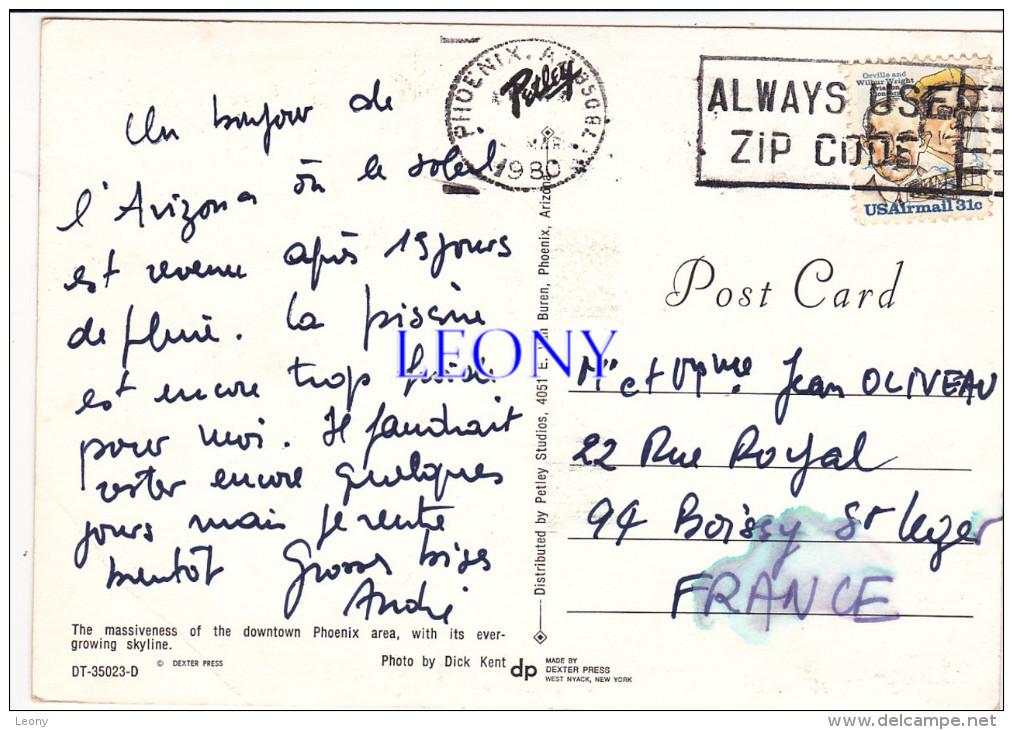 Un bonjour de
l'Arizona où le soleil
est revenu après 19 jours
de pluie. La piscine
est encore trop froide
pour moi. Il faudrait
rester encore quelques
jours mais je rentre
bientôt Grosses bises
André
The massiveness of the downtown Phoenix area, with its ever-
growing skyline.
DT-35023-D
© DEXTER PRESS
Photo by Dick Kent
dp
MADE BY
DEXTER PRESS
WEST NYACK, NEW YORK
Distributed by Petley Studios, 4051 E. Van Buren, Phoenix, Arizona
Petley
PHOENIX, A 850
MAR
1980
ALWAYS USE
ZIP CODE
Orville and
Wilbur Wright
Aviation
Pioneers
USAirmail 31c
Post Card
et Jean OLIVEAU
22 Rue Royal
94 Boissy St Leger
FRANCE
LEONY
Leony
www.delcampe.net